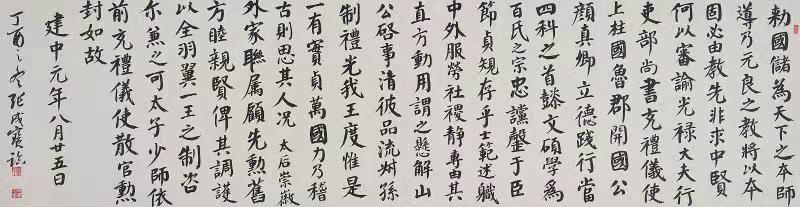 勅國儲為天下之本師
導乃元良之教將以本
固必由教先非求中賢
何以審諭光祿大夫行
吏部尚書充禮儀使
上柱國魯郡開國公
顏真卿立德踐行當
四科之首懿文碩學為
百氏之宗忠讜罄于臣
節貞規存乎士範述職
中外服勞社稷靜專由其
直方動用謂之懸解山
公啓事清彼品流叔孫
制禮光我王度惟是
一有實貞萬國力乃稽
古則思其人況 太后崇徽
外家聯属顧先勲舊
方睦親賢俾其調護
以全羽翼一王之制咨
尔兼之可太子少師依
前充禮儀使散官勲
封如故
建中元年八月廿五日
丁酉之冬張成寶臨